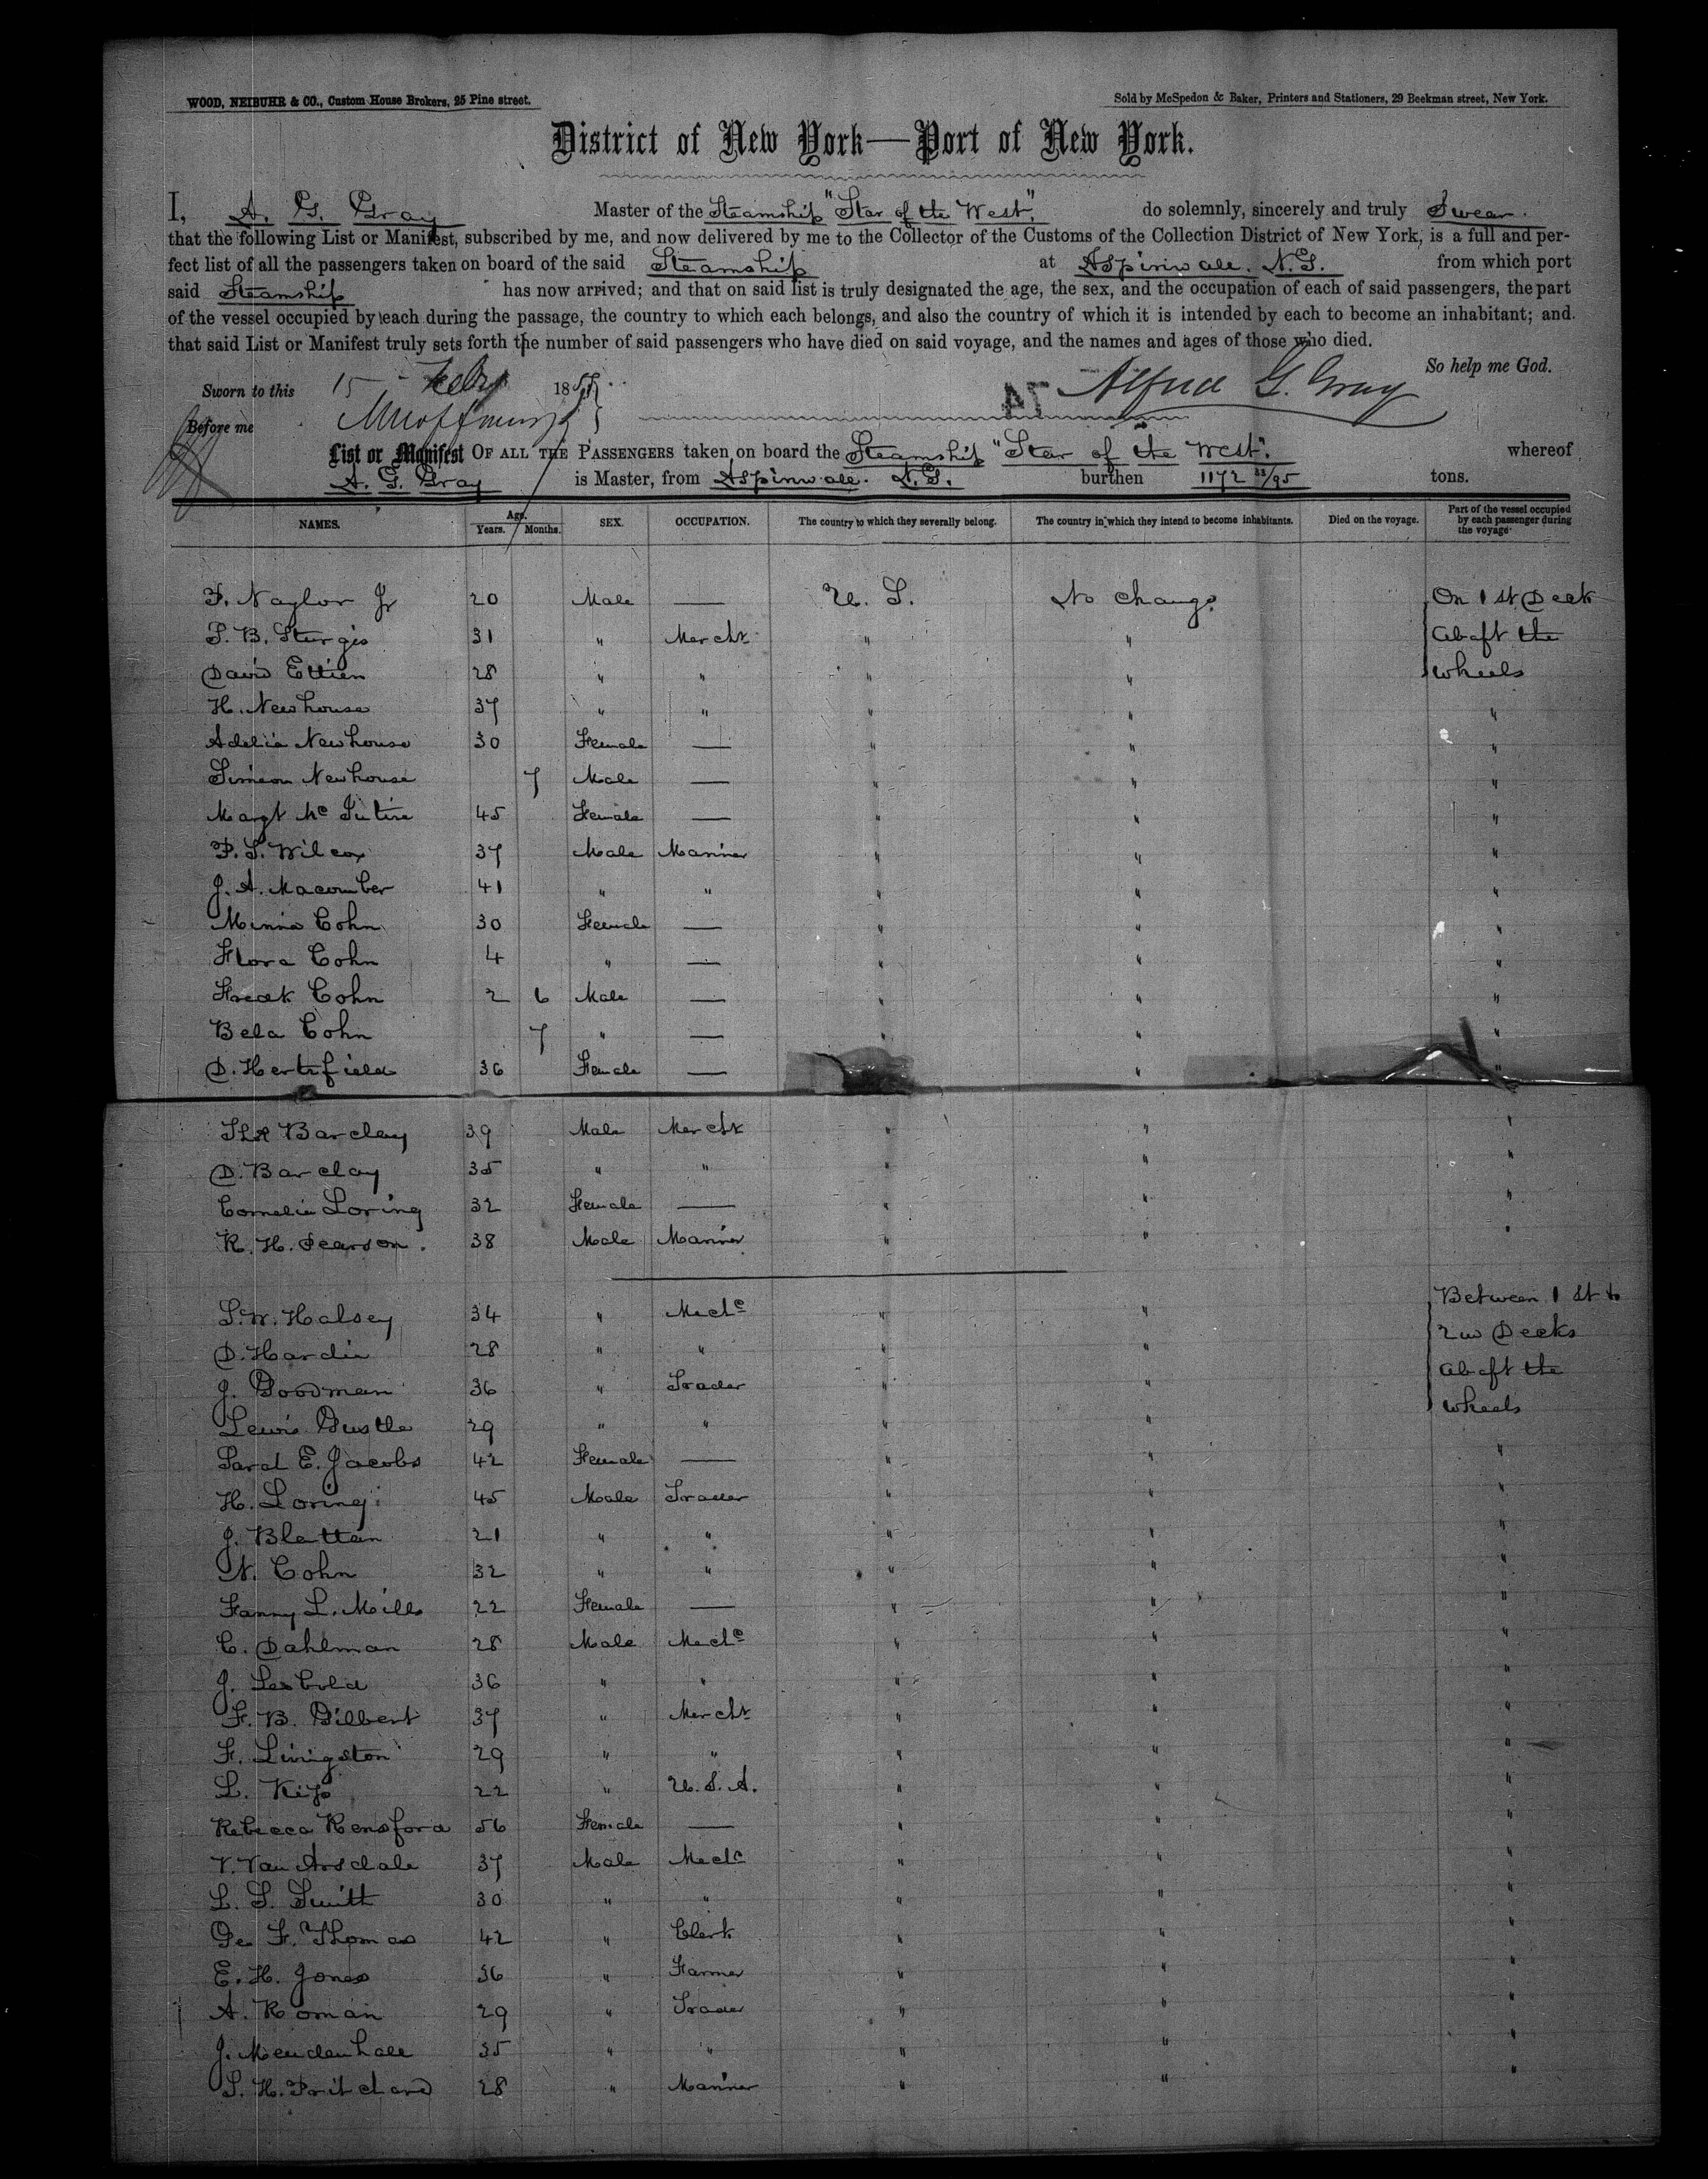 WOOD, NEIBUHR & CO., Custom House Brokers, 25 Pine street.
Sold by McSpedon & Baker, Printers and Stationers, 29 Beekman street, New York.
District of New York—Port of New York.
I, A. G. Gray Master of the Steamship "Star of the West" do solemnly, sincerely and truly Swear.
that the following List or Manifest, subscribed by me, and now delivered by me to the Collector of the Customs of the Collection District of New York, is a full and per-
fect list of all the passengers taken on board of the said Steamship at Aspinwall. N.G. from which port
said Steamship has now arrived; and that on said list is truly designated the age, the sex, and the occupation of each of said passengers, the part
of the vessel occupied by each during the passage, the country to which each belongs, and also the country of which it is intended by each to become an inhabitant; and
that said List or Manifest truly sets forth the number of said passengers who have died on said voyage, and the names and ages of those who died.
So help me God.
Sworn to this 15 Feby 18
74 Alfred G. Gray
Before me
List or Manifest OF ALL THE PASSENGERS taken on board the Steamship "Star of the West". whereof
A. G. Gray is Master, from Aspinwall. N.G. burthen 1172 33/95 tons.
NAMES. Age. Years. Months. SEX. OCCUPATION. The country to which they severally belong. The country in which they intend to become inhabitants. Died on the voyage. Part of the vessel occupied by each passenger during the voyage
F. Naylor Jr 20 Male — U. S. No change On 1st Deck
S. B. Sturgis 31 " Mercht " " abaft the
David Ettien 28 " " " " wheels
H. Newhouse 37 " " " " "
Adelia Newhouse 30 Female — " " "
Simeon Newhouse 7 Male — " " "
Margt Mc Intire 45 Female — " " "
P. S. Wilcox 37 Male Mariner " " "
J. A. Macomber 41 " " " " "
Minna Cohn 30 Female — " " "
Flora Cohn 4 " — " " "
Fredk Cohn 2 6 Male — " " "
Bela Cohn 7 " — " " "
D. Hertzfield 36 Female — " "
Barclay 39 Male Mercht " " "
D. Barclay 35 " " " " "
Cornelia Loring 32 Female — " " "
R. H. Pearson. 38 Male Mariner " " "
S. W. Halsey 34 " Mechc " " Between 1st &
D. Hardie 28 " " " " 2nd Decks
J. Goodman 36 " Trader " " abaft the
Lewis Gustle 29 " " " " wheels
Sarah E. Jacobs 42 Female — " " "
H. Loring 45 Male Trader " " "
J. Blattan 21 " " " " "
N. Cohn 32 " " " " "
Fanny L. Mills 22 Female — " " "
C. Dahlman 28 Male Mechc " " "
J. Leobold 36 " " " " "
F. B. Gilbert 37 " Mercht " " "
F. Livingston 29 " " " " "
L. Kip 22 " U. S. A. " " "
Rebecca Hensford 56 Female — " " "
V. Van Arsdale 37 Male Mechc " " "
L. S. Smith 30 " " " " "
Geo F. Thomas 42 " Clerk " " "
E. H. Jones 36 " Farmer " " "
A. Roman 29 " Trader " " "
J. Mendenhall 35 " " " " "
S. H. Pritchard 28 " Mariner " " "